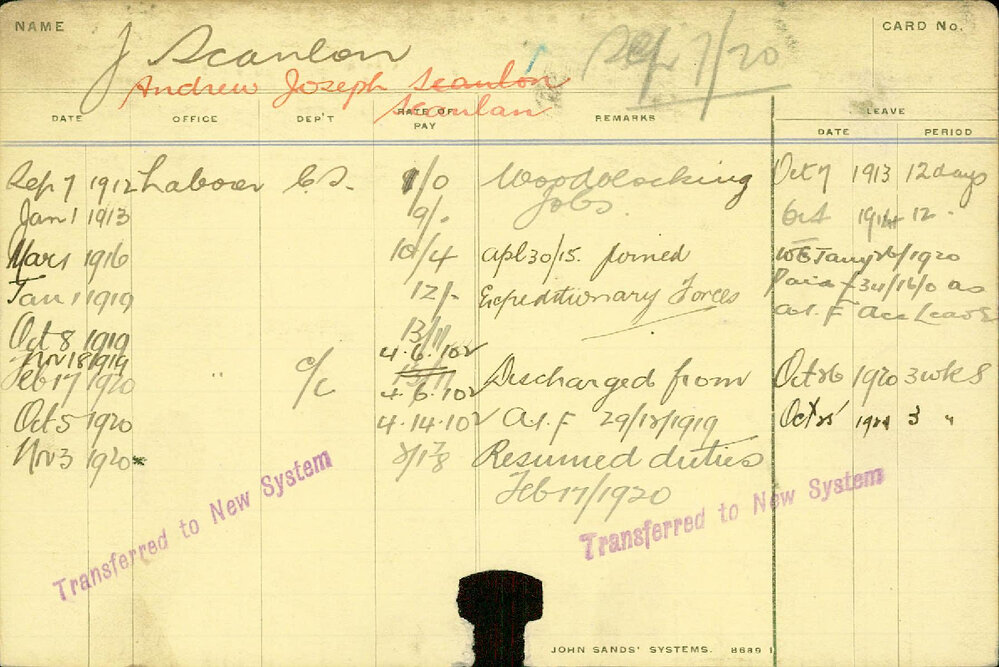 NAME
J Scanlon
Sep 7/20
CARD No.
Andrew Joseph Scanlon
Scanlan
DATE OFFICE DEP'T RATE OF PAY REMARKS LEAVE
DATE PERIOD
Sep 7 1912 Labourer /0 Woodblocking Oct 7 1913 12 days
Jan 1 1913 9/. Jobs. Oct 1914 12 "
Mar 1 1916 10/4 Apl 30/15. Joined Jany 26/1920
Jan 1 1919 12/- Expeditionary Forces Paid £34/16/0 as
Oct 8 1919 13/11 A.I.F Acc Leave
Nov 18 1919 4.6.10½
Feb 17 1920 " C/C 13/11 Discharged from Oct 26 1920 3 wks
4.6.10½
Oct 5 1920 4.14.10½ A.I.F 29/12/1919 Oct 3 "
Nov 3 1920* Resumed duties
Feb 17/1920
Transferred to New System
Transferred to New System
JOHN SANDS' SYSTEMS. 8689